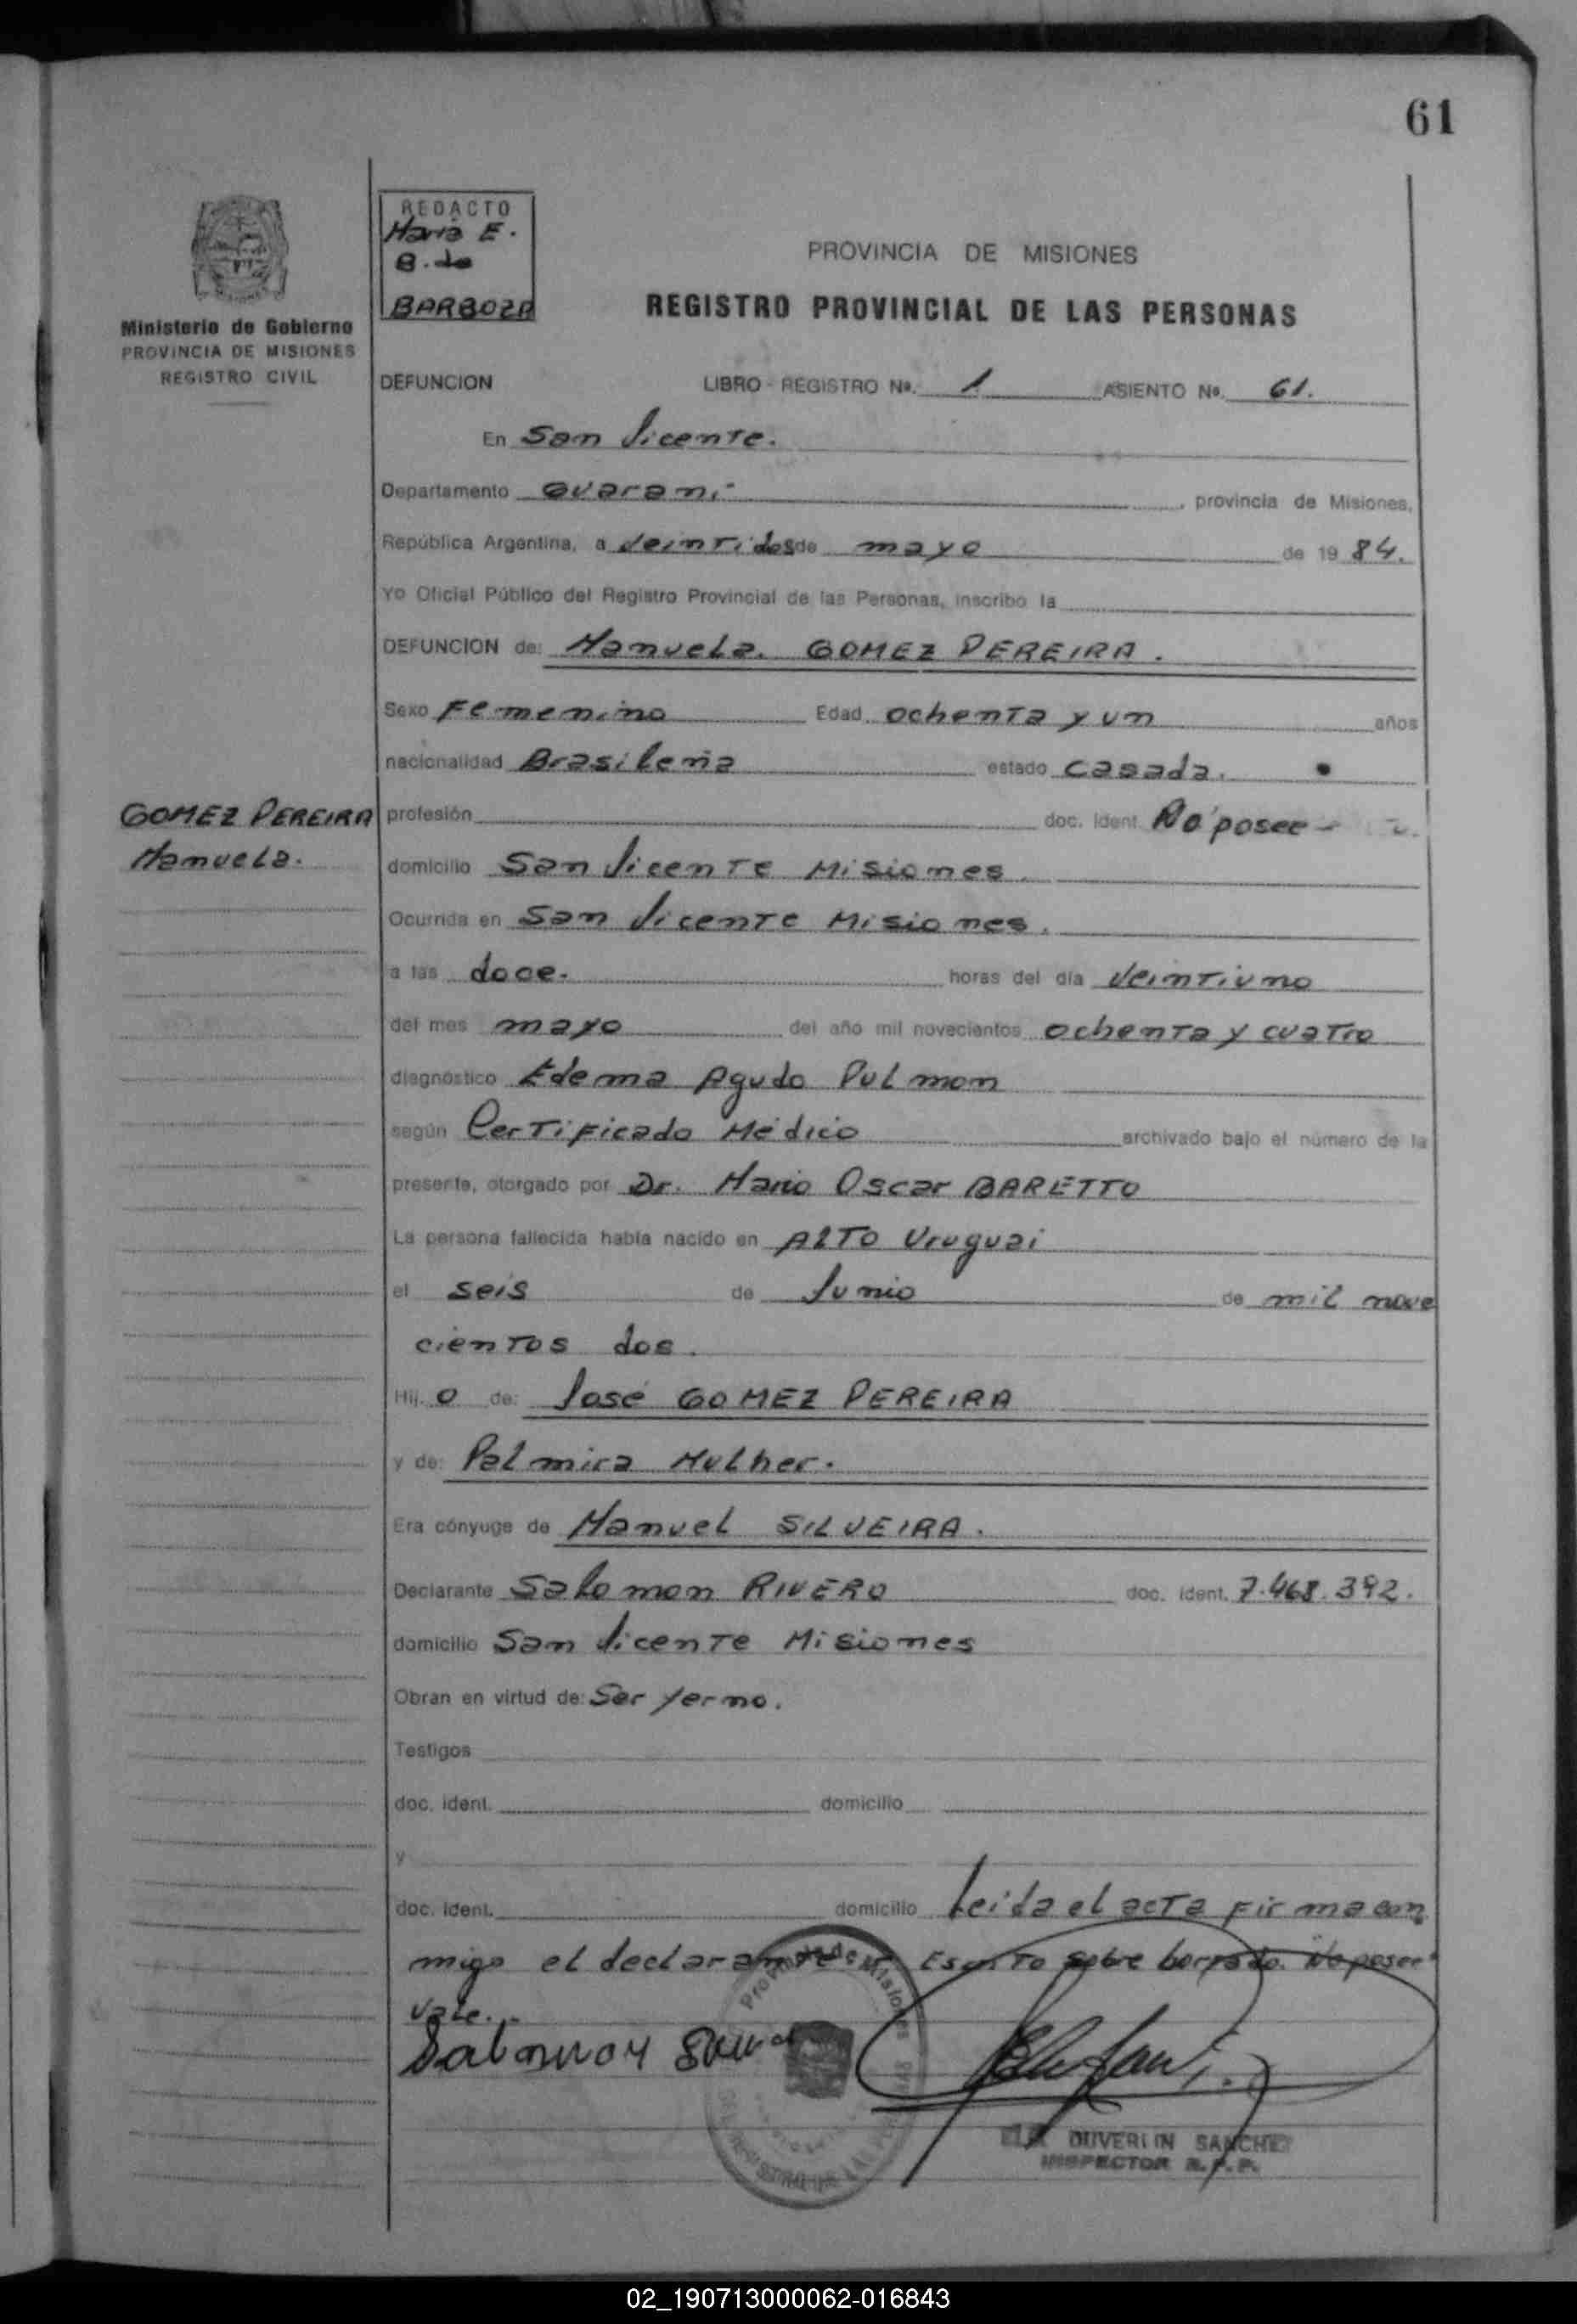 61
REDACTO
Maria E.
B. de
BARBOZA
Ministerio de Gobierno
PROVINCIA DE MISIONES
REGISTRO CIVIL
PROVINCIA DE MISIONES
REGISTRO PROVINCIAL DE LAS PERSONAS
DEFUNCION LIBRO - REGISTRO Nº. 1 ASIENTO Nº. 61.
En San Vicente.
Departamento Guaraní, provincia de Misiones,
República Argentina, a veintidos de mayo de 1984.
Yo Oficial Público del Registro Provincial de las Personas, inscribo la
DEFUNCION de: Manuela. GOMEZ PEREIRA.
Sexo Femenino Edad ochenta y un años
nacionalidad Brasileña estado casada.
GOMEZ PEREIRA
Manuela.
profesión doc. ident. No posee -
domicilio San Vicente Misiones.
Ocurrida en San Vicente Misiones.
a las doce. horas del día veintiuno
del mes mayo del año mil novecientos ochenta y cuatro
diagnóstico Edema Agudo Pulmon
según Certificado Médico archivado bajo el número de la
presente, otorgado por Dr. Mario Oscar BARETTO
La persona fallecida había nacido en Alto Uruguai
el seis de Junio de mil nove
cientos dos.
Hij o de: José GOMEZ PEREIRA
y de: Palmira Mulher.
Era cónyuge de Manuel SILVEIRA.
Declarante Salomon RIVERO doc. ident. 7.468.392.
domicilio San Vicente Misiones
Obran en virtud de: Ser yerno.
Testigos
doc. ident. domicilio
y
doc. ident. domicilio Leida el acta firma con
migo el declarante. Escrito sobre borrado. "No posee"
Vale.
Provincia de Misiones
DUVERLIN SANCHEZ
INSPECTOR R.P.P.
02_190713000062-016843